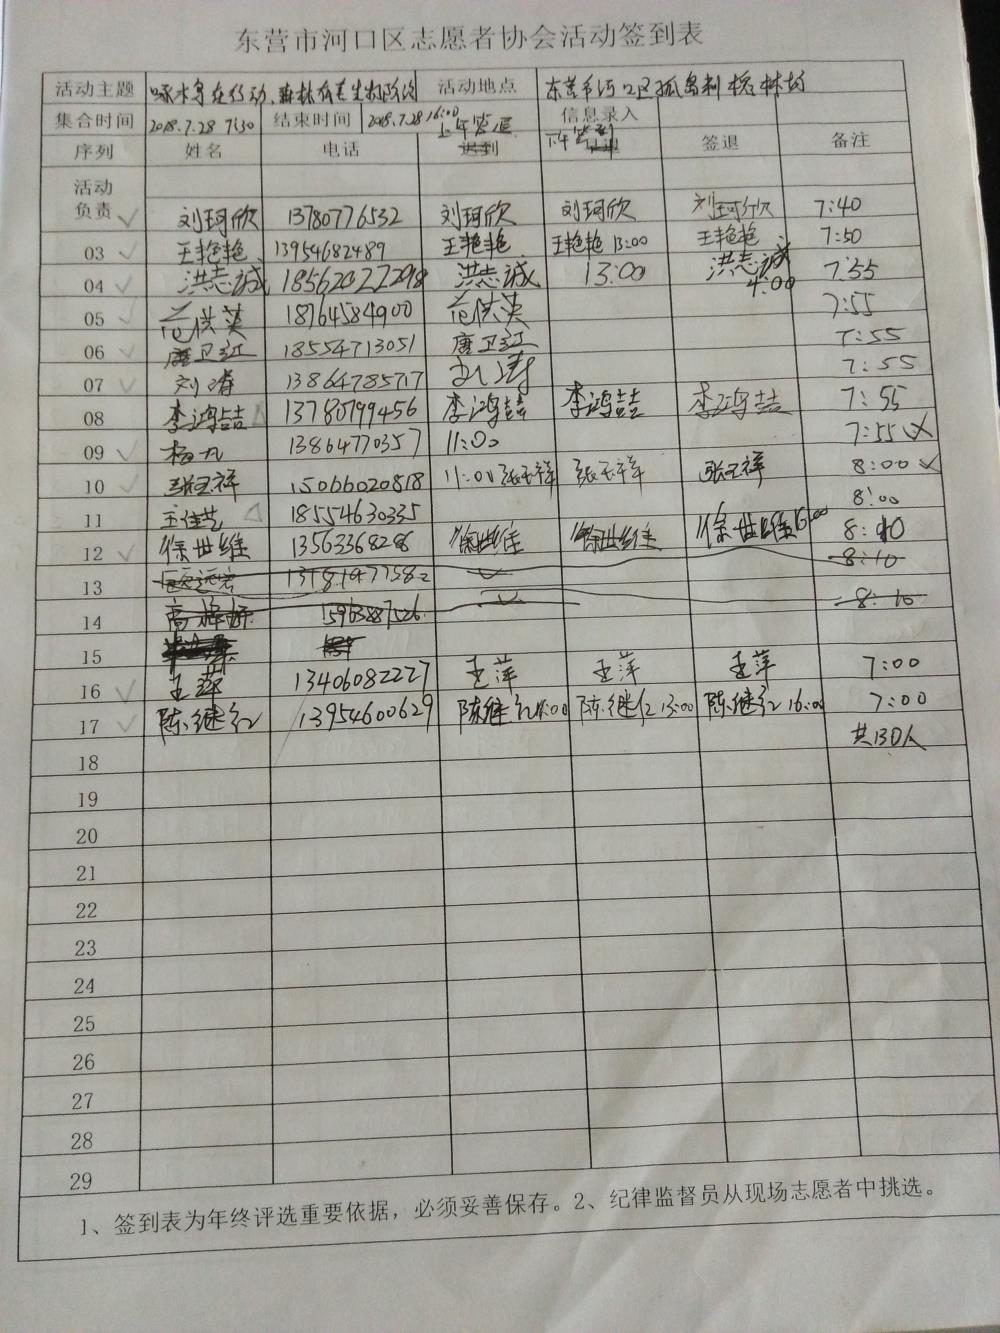 东营市河口区志愿者协会活动签到表
活动主题 啄木鸟在行动、森林有害生物防治 活动地点 东营市河口区孤岛刺槐林场
集合时间 2018.7.28 7:30 结束时间 2018.7.28 16:00 信息录入
序列 姓名 电话 上午签退 下午签到 签退 备注
活动
负责 刘珂欣 13780776532 刘珂欣 刘珂欣 刘珂欣 7:40
03 王艳艳 13954682489 王艳艳 王艳艳 13:00 王艳艳 7:50
04 洪志诚 18562022298 洪志诚 13:00 洪志诚 4:00 7:55
05 范洪英 18764584900 范洪英 7:55
06 唐卫江 18554713051 唐卫江 7:55
07 刘涛 13864785717 刘涛 7:55
08 李鸿喆 13780799456 李鸿喆 李鸿喆 李鸿喆 7:55
09 杨九 13864770357 11:00 7:55
10 张玉祥 15066020818 11:00 张玉祥 张玉祥 张玉祥 8:00
11 王佳艺 18554630335 8:00
12 徐世维 13563368286 徐世维 徐世维 徐世维 16:00 8:10
13 8:10
14 15963887526 8:10
15
16 王萍 13406082227 王萍 王萍 王萍 7:00
17 陈继红 13954600629 陈继红 11:00 陈继红 13:00 陈继红 16:00 7:00
18 共130人
19
20
21
22
23
24
25
26
27
28
29
1、签到表为年终评选重要依据，必须妥善保存。2、纪律监督员从现场志愿者中挑选。